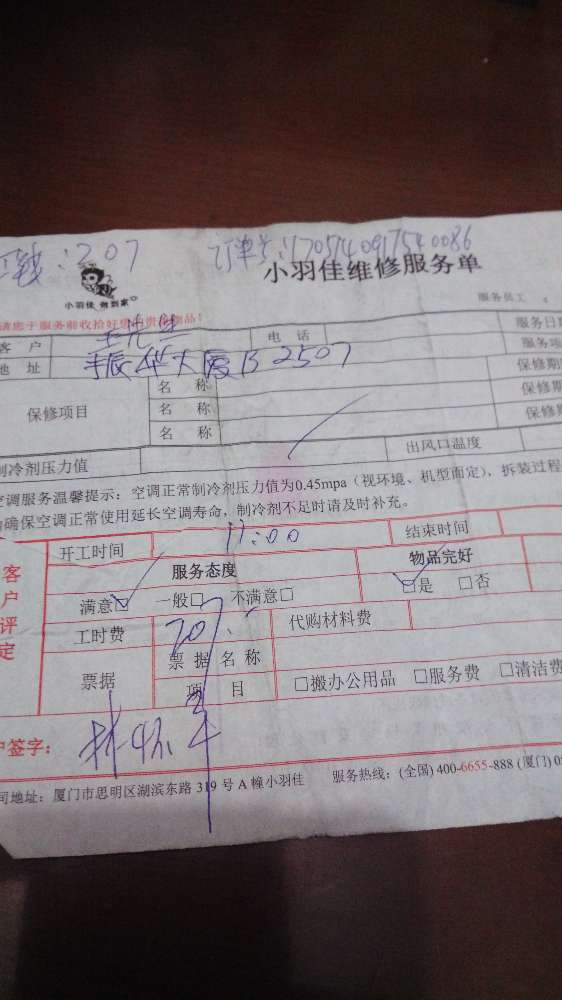 钱:207 订单号:1705140917540086
小羽佳维修服务单
小羽佳 做到家
服务员工
请您于服务前收拾好您的贵重物品!
客 户 电 话 服务日
地 址 振华大厦B 2507 服务项
保修项目 名 称 保修期
名 称 保修期
名 称 保修
制冷剂压力值 出风口温度
空调服务温馨提示:空调正常制冷剂压力值为0.45mpa(视环境、机型而定),拆装过程
确保空调正常使用延长空调寿命,制冷剂不足时请及时补充。
客户评定
开工时间 17:00 结束时间
服务态度 物品完好
满意☑ 一般□ 不满意□ ☑是 □否
工时费 207 代购材料费
票据 票 据 名 称
项 目 □搬办公用品 □服务费 □清洁费
户签字:
司地址:厦门市思明区湖滨东路 319 号 A 幢小羽佳 服务热线:(全国) 400-6655-888 (厦门) 05